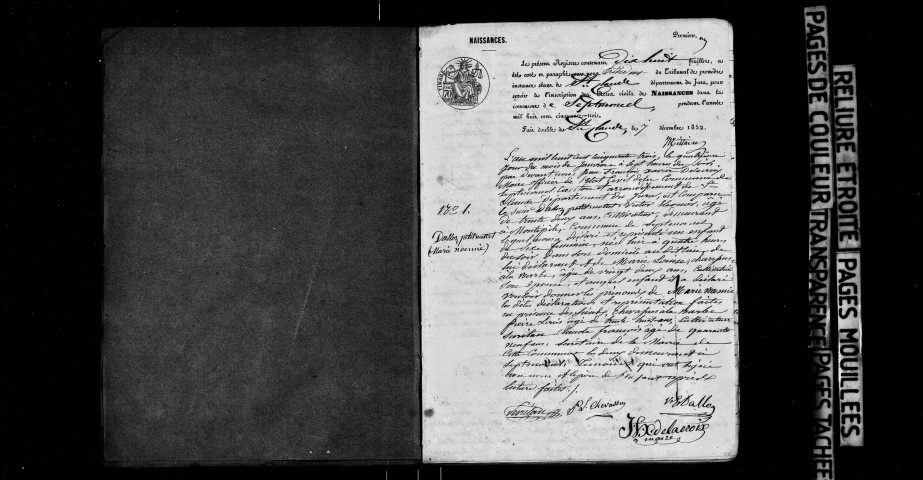 NAISSANCES.
Premier
Le présent Registre contenant Dix huit feuillets, a
été coté et paraphé par nous du Tribunal de première
instance séant de St Claude département du Jura, pour
servir de l'inscription des Actes civils de NAISSANCES dans la
commune de Septmoncel pendant l'année
mil huit cent cinquante-trois.
Fait double à St Claude, le 7 décembre 1852.
L'an mil huit cent cinquante trois, le quatrième
jour du mois de janvier à sept heures du soir,
par devant nous Jean François Xavier Delacroix
Maire officier de l'état civil de la Commune de
Septmoncel canton et arrondissement de St
Claude département du Jura, est comparu
le sieur Dalloz petitmottet Victor Eloquent, âgé
de trente deux ans, cultivateur, demeurant
à Montépile, Commune de Septmoncel
lequel nous a déclaré et représenté un enfant
de sexe féminin, née hier à quatre heures
du soir dans son domicile
lui déclarant et de Marie Louise chevassus
à la barbe, âgée de vingt deux ans,
son épouse, et auquel enfant il a déclaré
vouloir donner les prénoms de Marie noemie
les dites déclarations et représentation faites
en présence des sieurs Chevassus à la barbe
pierre Louis âgé de trente huit ans, cultivateur
claude françois âgé de quarante
neuf ans, secrétaire de la Mairie de
Cette Commune les deux demeurant à
Septmoncel, témoins qui ont signé
avec nous et le père de l'enfant après
lecture faite.
N° 1.
Dalloz petitmottet
(Marie noemie)
P. L. Chevassus
V. E Dalloz
JFX delacroix
maire
PAGES DE COULEUR TRANSPARENCE PAGES TACHEES
RELIURE ETROITE PAGES MOUILLEES